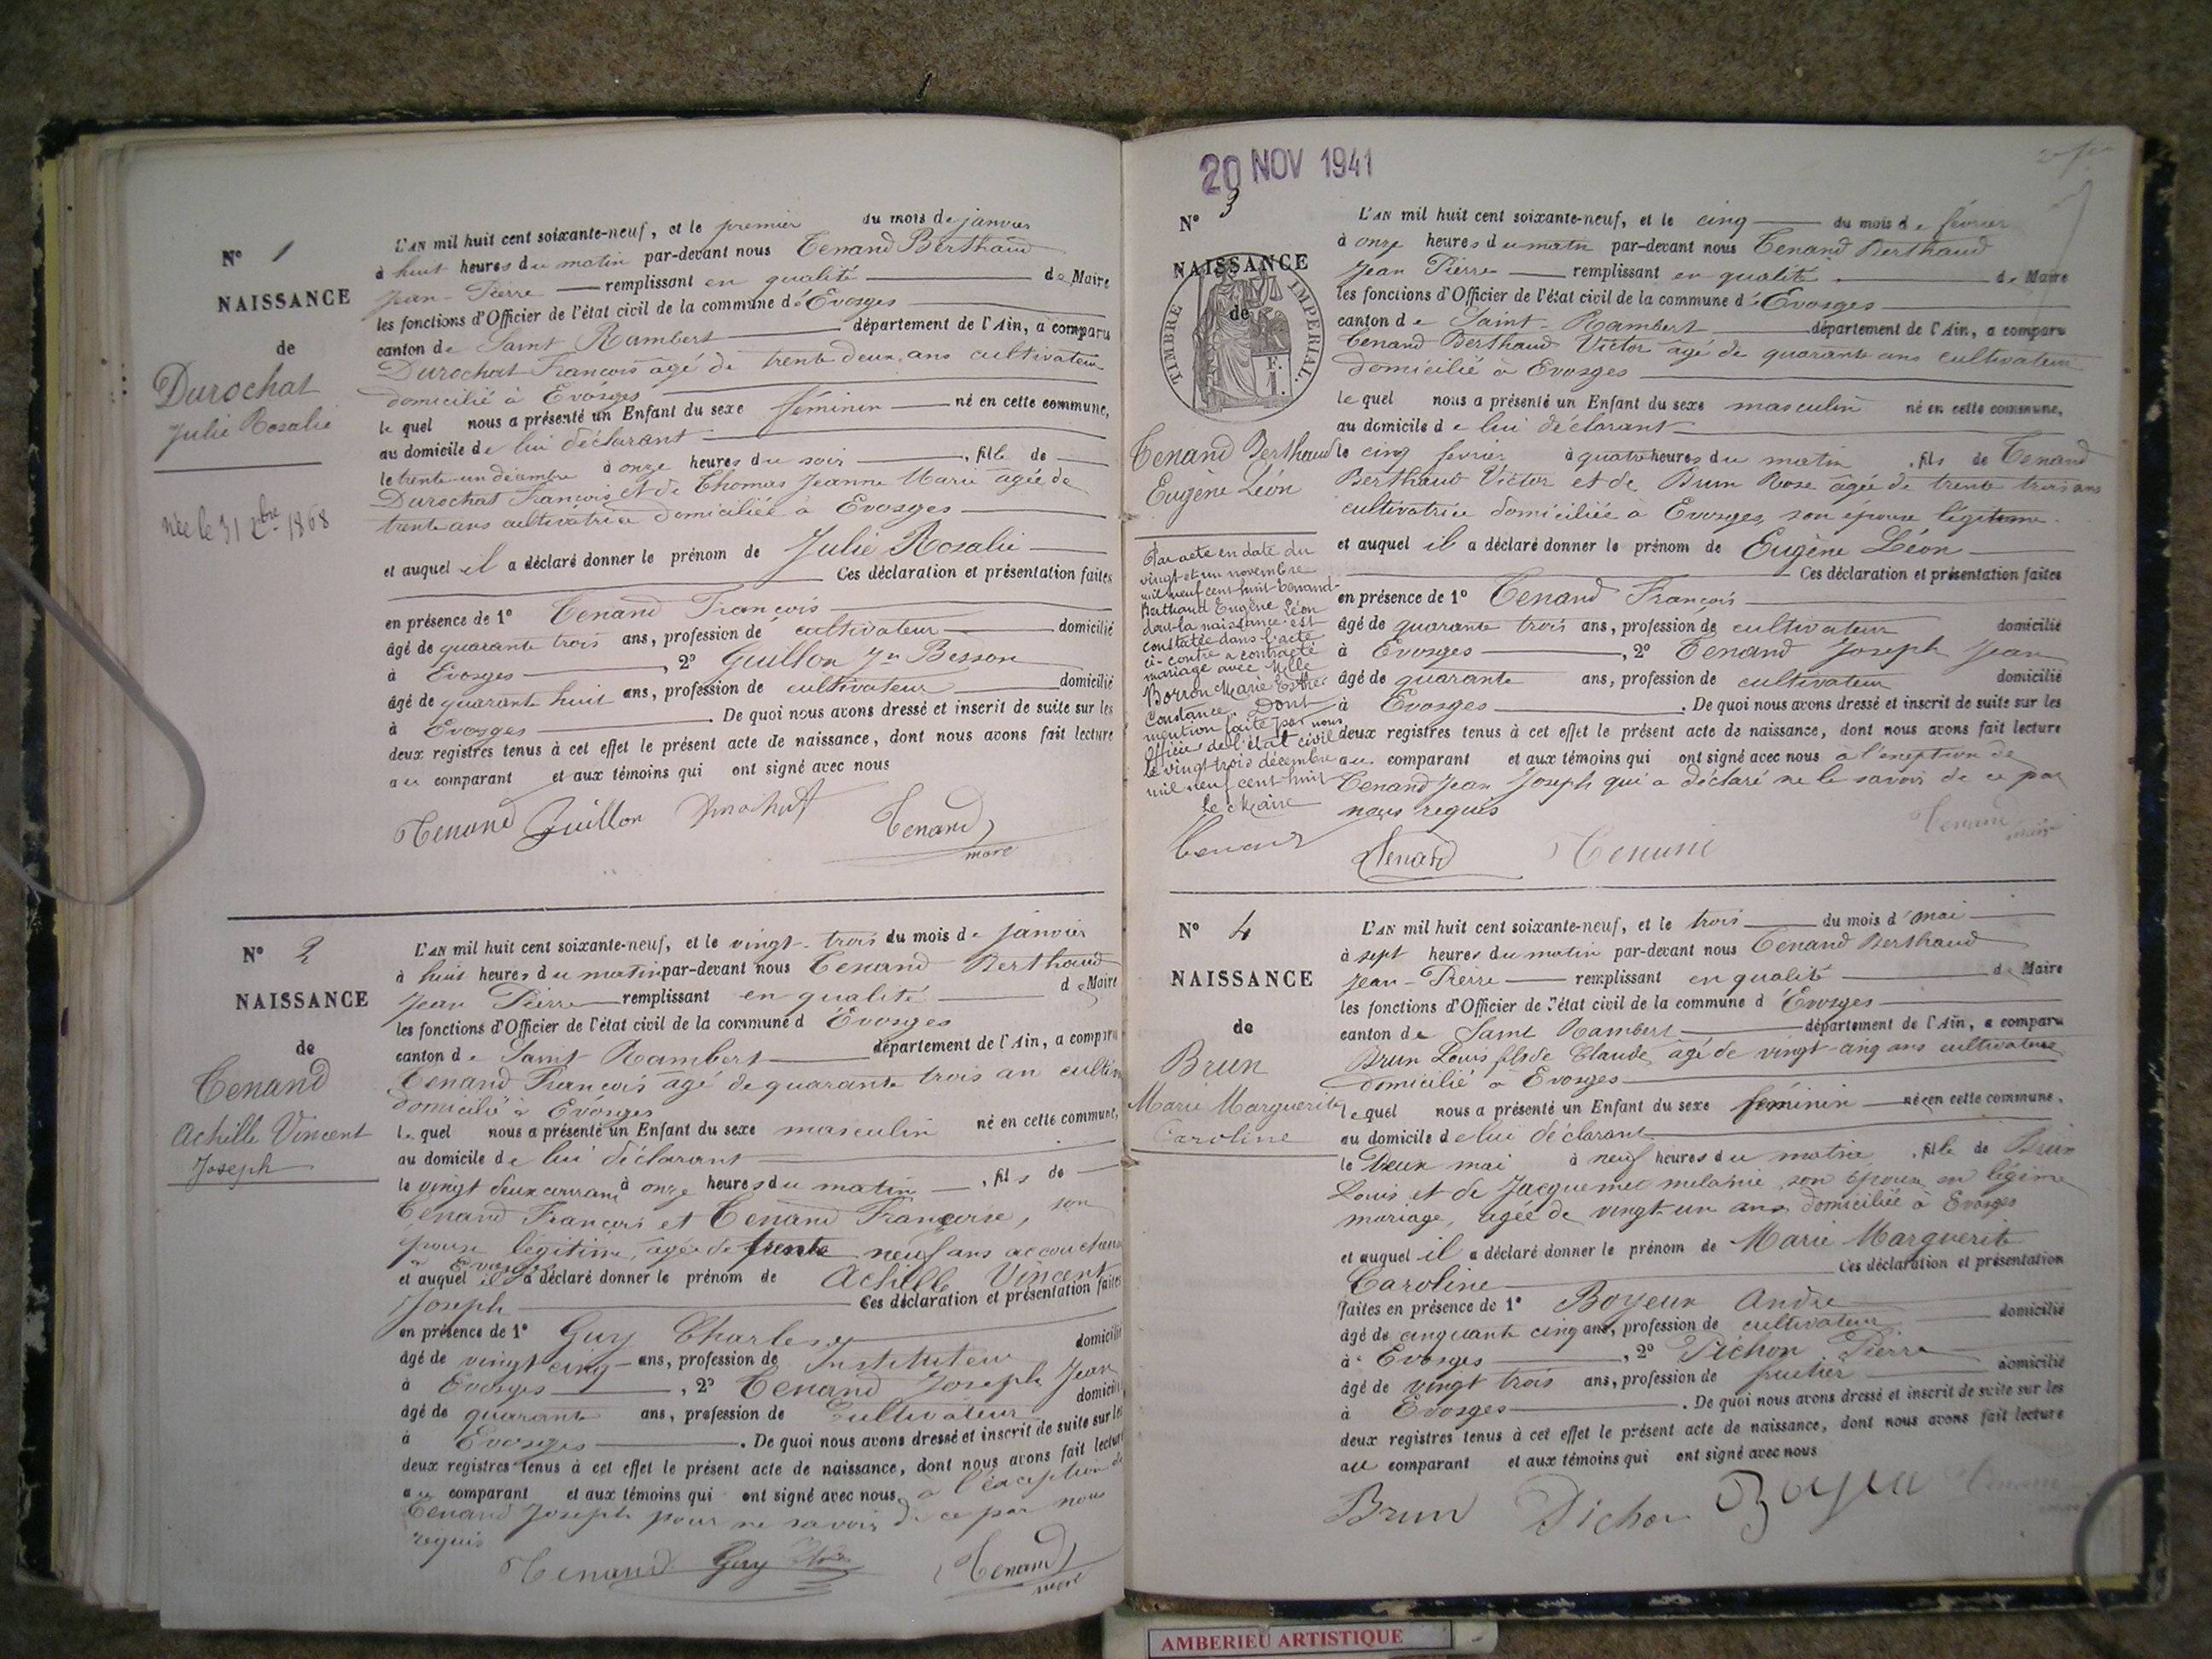 N° 1
NAISSANCE
de
Durochat
Julie Rosalie
née le 31 Xbre 1868
L'AN mil huit cent soixante-neuf, et le premier du mois de janvier
à huit heures du matin par-devant nous Tenand Berthaud
Jean-Pierre remplissant en qualité de Maire
les fonctions d'Officier de l'état civil de la commune d'Evosges
canton de Saint Rambert département de l'Ain, a comparu
Durochat François agé de trente deux ans cultivateur
domicilié à Evosges
le quel nous a présenté un Enfant du sexe féminin né en cette commune,
au domicile de lui déclarant
le trente-un décembre à onze heures du soir, fille de
Durochat François et de Thomas Jeanne Marie agée de
trente ans cultivatrice domiciliée à Evosges
et auquel il a déclaré donner le prénom de Julie Rosalie
Ces déclaration et présentation faites
en présence de 1° Tenand François
âgé de quarante trois ans, profession de cultivateur domicilié
à Evosges, 2° Guillon Besson
âgé de quarante huit ans, profession de cultivateur domicilié
à Evosges. De quoi nous avons dressé et inscrit de suite sur les
deux registres tenus à cet effet le présent acte de naissance, dont nous avons fait lecture
au comparant et aux témoins qui ont signé avec nous
Tenand Guillon Durochat Tenand
mare
N° 2
NAISSANCE
de
Tenand
Achille Vincent
Joseph
L'AN mil huit cent soixante-neuf, et le vingt-trois du mois de janvier
à huit heures du matin par-devant nous Tenand Berthaud
Jean Pierre remplissant en qualité de Maire
les fonctions d'Officier de l'état civil de la commune d Evosges
canton de Saint Rambert département de l'Ain, a comparu
Tenand François agé de quarante trois an
domicilié à Evosges
le quel nous a présenté un Enfant du sexe masculin né en cette commune,
au domicile de lui déclarant
le vingt deux courant à onze heures du matin, fils de
Tenand François et Tenand Françoise, son
épouse légitime, agée de trente neuf ans
à Evosges
et auquel il a déclaré donner le prénom de Achille Vincent
Joseph Ces déclaration et présentation faites
en présence de 1° Guy Charles domicilié
âgé de vingt cinq ans, profession de Instituteur
à Evosges, 2° Tenand Joseph Jean
âgé de quarante ans, profession de Cultivateur domicilié
à Evosges. De quoi nous avons dressé et inscrit de suite sur les
deux registres tenus à cet effet le présent acte de naissance, dont nous avons fait lecture
au comparant et aux témoins qui ont signé avec nous à l'exception de
Tenand Joseph pour ne savoir de ce par nous
requis
Tenand Guy Tenand
mare
20 NOV 1941
N° 3
NAISSANCE
de
TIMBRE IMPERIAL.
Tenand Berthaud
Eugène Léon
Par acte en date du
vingt et un novembre
mil neuf cent huit Tenand-
Berthaud Eugène Léon
dont la naissance est
constatée dans l'acte
ci-contre a contracté
mariage avec Melle
Borron Marie Esther
Constance. Dont
mention faite par nous
Officier de l'état civil
le vingt trois décembre
mil neuf cent huit
Le Maire
Tenand
L'AN mil huit cent soixante-neuf, et le cinq du mois de février
à onze heures du matin par-devant nous Tenand Berthaud
Jean Pierre remplissant en qualité de Maire
les fonctions d'Officier de l'état civil de la commune d'Evosges
canton de Saint-Rambert département de l'Ain, a comparu
Tenand Berthaud Victor âgé de quarante ans cultivateur
domicilié à Evosges
le quel nous a présenté un Enfant du sexe masculin né en cette commune,
au domicile de lui déclarant
le cinq février à quatre heures du matin, fils de Tenand
Berthaud Victor et de Brun Rose agée de trente trois ans
cultivatrice domiciliée à Evosges, son épouse légitime
et auquel il a déclaré donner le prénom de Eugène Léon
Ces déclaration et présentation faites
en présence de 1° Tenand François
âgé de quarante trois ans, profession de cultivateur domicilié
à Evosges, 2° Tenand Joseph Jean
âgé de quarante ans, profession de cultivateur domicilié
à Evosges. De quoi nous avons dressé et inscrit de suite sur les
deux registres tenus à cet effet le présent acte de naissance, dont nous avons fait lecture
au comparant et aux témoins qui ont signé avec nous à l'exeption de
Tenand Jean Joseph qui a déclaré ne le savoir de ce par
nous requis
Tenand Tenand Tenand
N° 4
NAISSANCE
de
Brun
Marie Marguerite
Caroline
L'AN mil huit cent soixante-neuf, et le trois du mois d'mai
à sept heures du matin par-devant nous Tenand Berthaud
Jean-Pierre remplissant en qualité de Maire
les fonctions d'Officier de l'état civil de la commune d Evosges
canton de Saint Rambert département de l'Ain, a comparu
Brun Louis fils de Claude, âgé de vingt-cinq ans cultivateur
domicilié à Evosges
lequel nous a présenté un Enfant du sexe féminin née en cette commune,
au domicile de lui déclarant
le Deux mai à neuf heures du matin, fille de Brun
Louis et de Jacquemet melanie, son épouse en légime
mariage, agée de vingt-un ans domiciliée à Evosges
et auquel il a déclaré donner le prénom de Marie Marguerite
Caroline Ces déclaration et présentation
faites en présence de 1° Boyeux André
âgé de cinquante cinq ans, profession de cultivateur domicilié
à Evosges, 2° Pichon Pierre
âgé de vingt trois ans, profession de domicilié
à Evosges. De quoi nous avons dressé et inscrit de suite sur les
deux registres tenus à cet effet le présent acte de naissance, dont nous avons fait lecture
au comparant et aux témoins qui ont signé avec nous
Brun Pichon Boyeux Tenand
AMBERIEU ARTISTIQUE